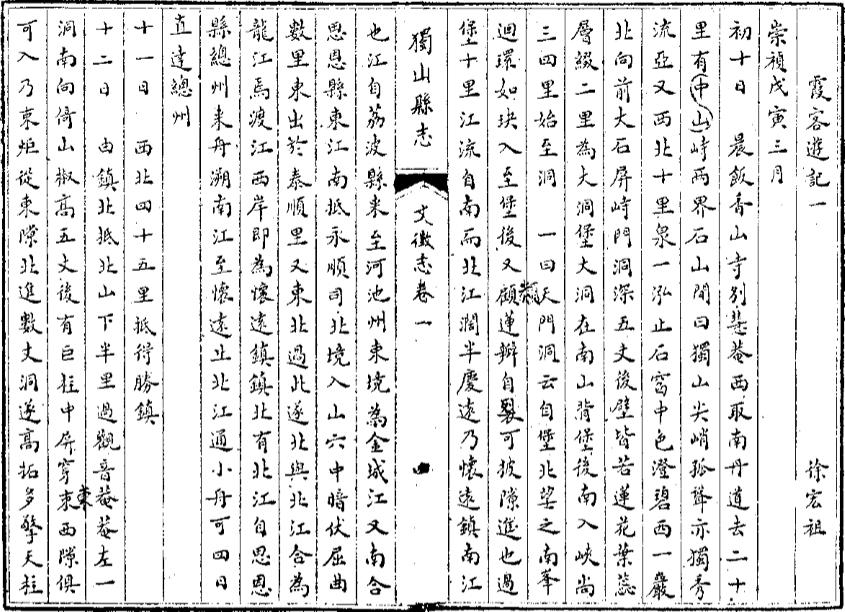 霞客遊記一 徐宏祖
崇禎戊寅三月
初十日 晨飯香山寺別慧菴西取南丹道去二十
里有中山峙兩界石山間曰獨山尖峭孤聳亦獨秀
流亞又西北十里泉一泓止石窩中色澄碧西一巖
北向前大石屏峙門洞深五丈後壁皆若蓮花葉蕊
層綴二里為大洞堡大洞在南山背堡後南入峽尚
三四里始至洞 一曰天門洞云自堡北望之南峯
迴環如玦入至堡後又顧蓮瓣自裂可披隙進也過
堡十里江流自南而北江濶半慶遠乃懷遠鎮南江
獨山縣志 文徵志卷一
也江自荔波縣來至河池州東境為金城江又南合
思恩縣東江南抵永順司北境入山穴中暗伏屈曲
數里東出於泰順里又東北過北遂北與北江合為
龍江焉渡江西岸即為懷遠鎮鎮北有北江自思恩
縣總州來舟溯南江至懷遠止北江通小舟可四日
直達總州
十一日 西北四十五里抵衍勝鎮
十二日 由鎮北抵北山下半里過觀音菴菴左一
洞南向倚山椒高五丈後有巨柱中屏穿東西隙俱
可入乃束炬從東隙北進數丈洞遂高拓多擎天柱